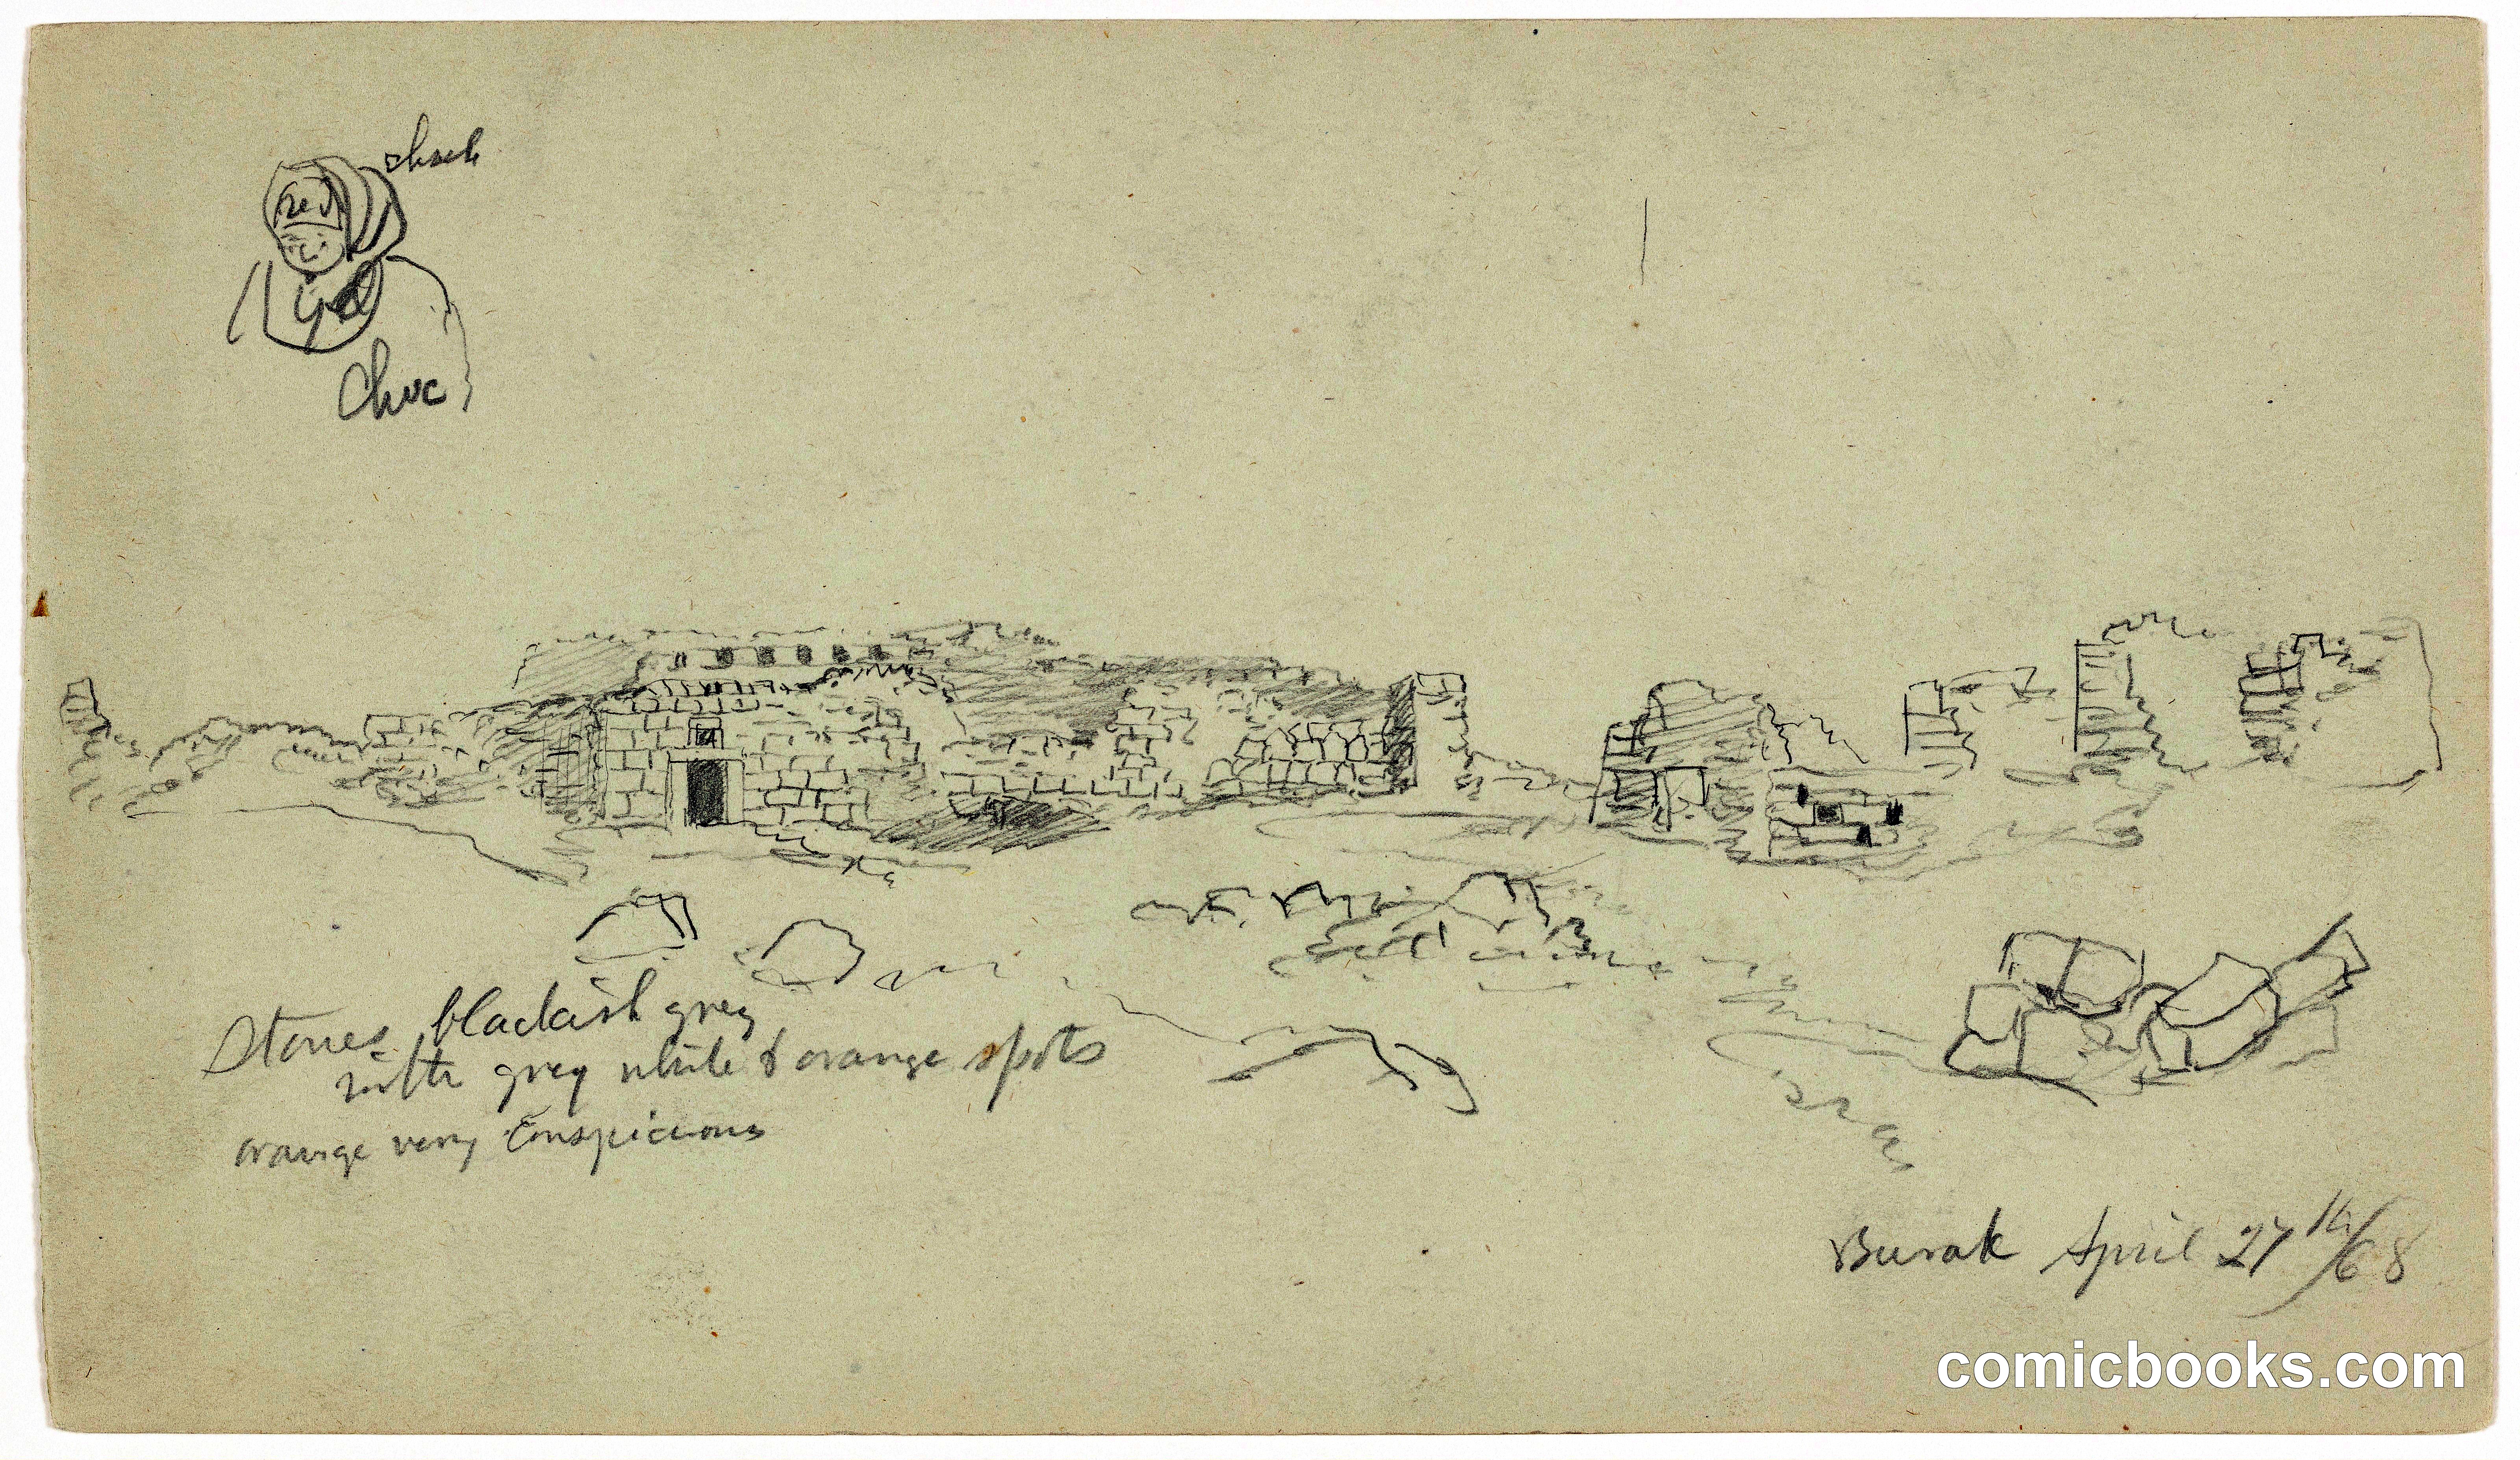 red
Choc
Stones blackish grey
with grey white & orange spots
orange very conspicious
Burak April 27th/68
comicbooks.com